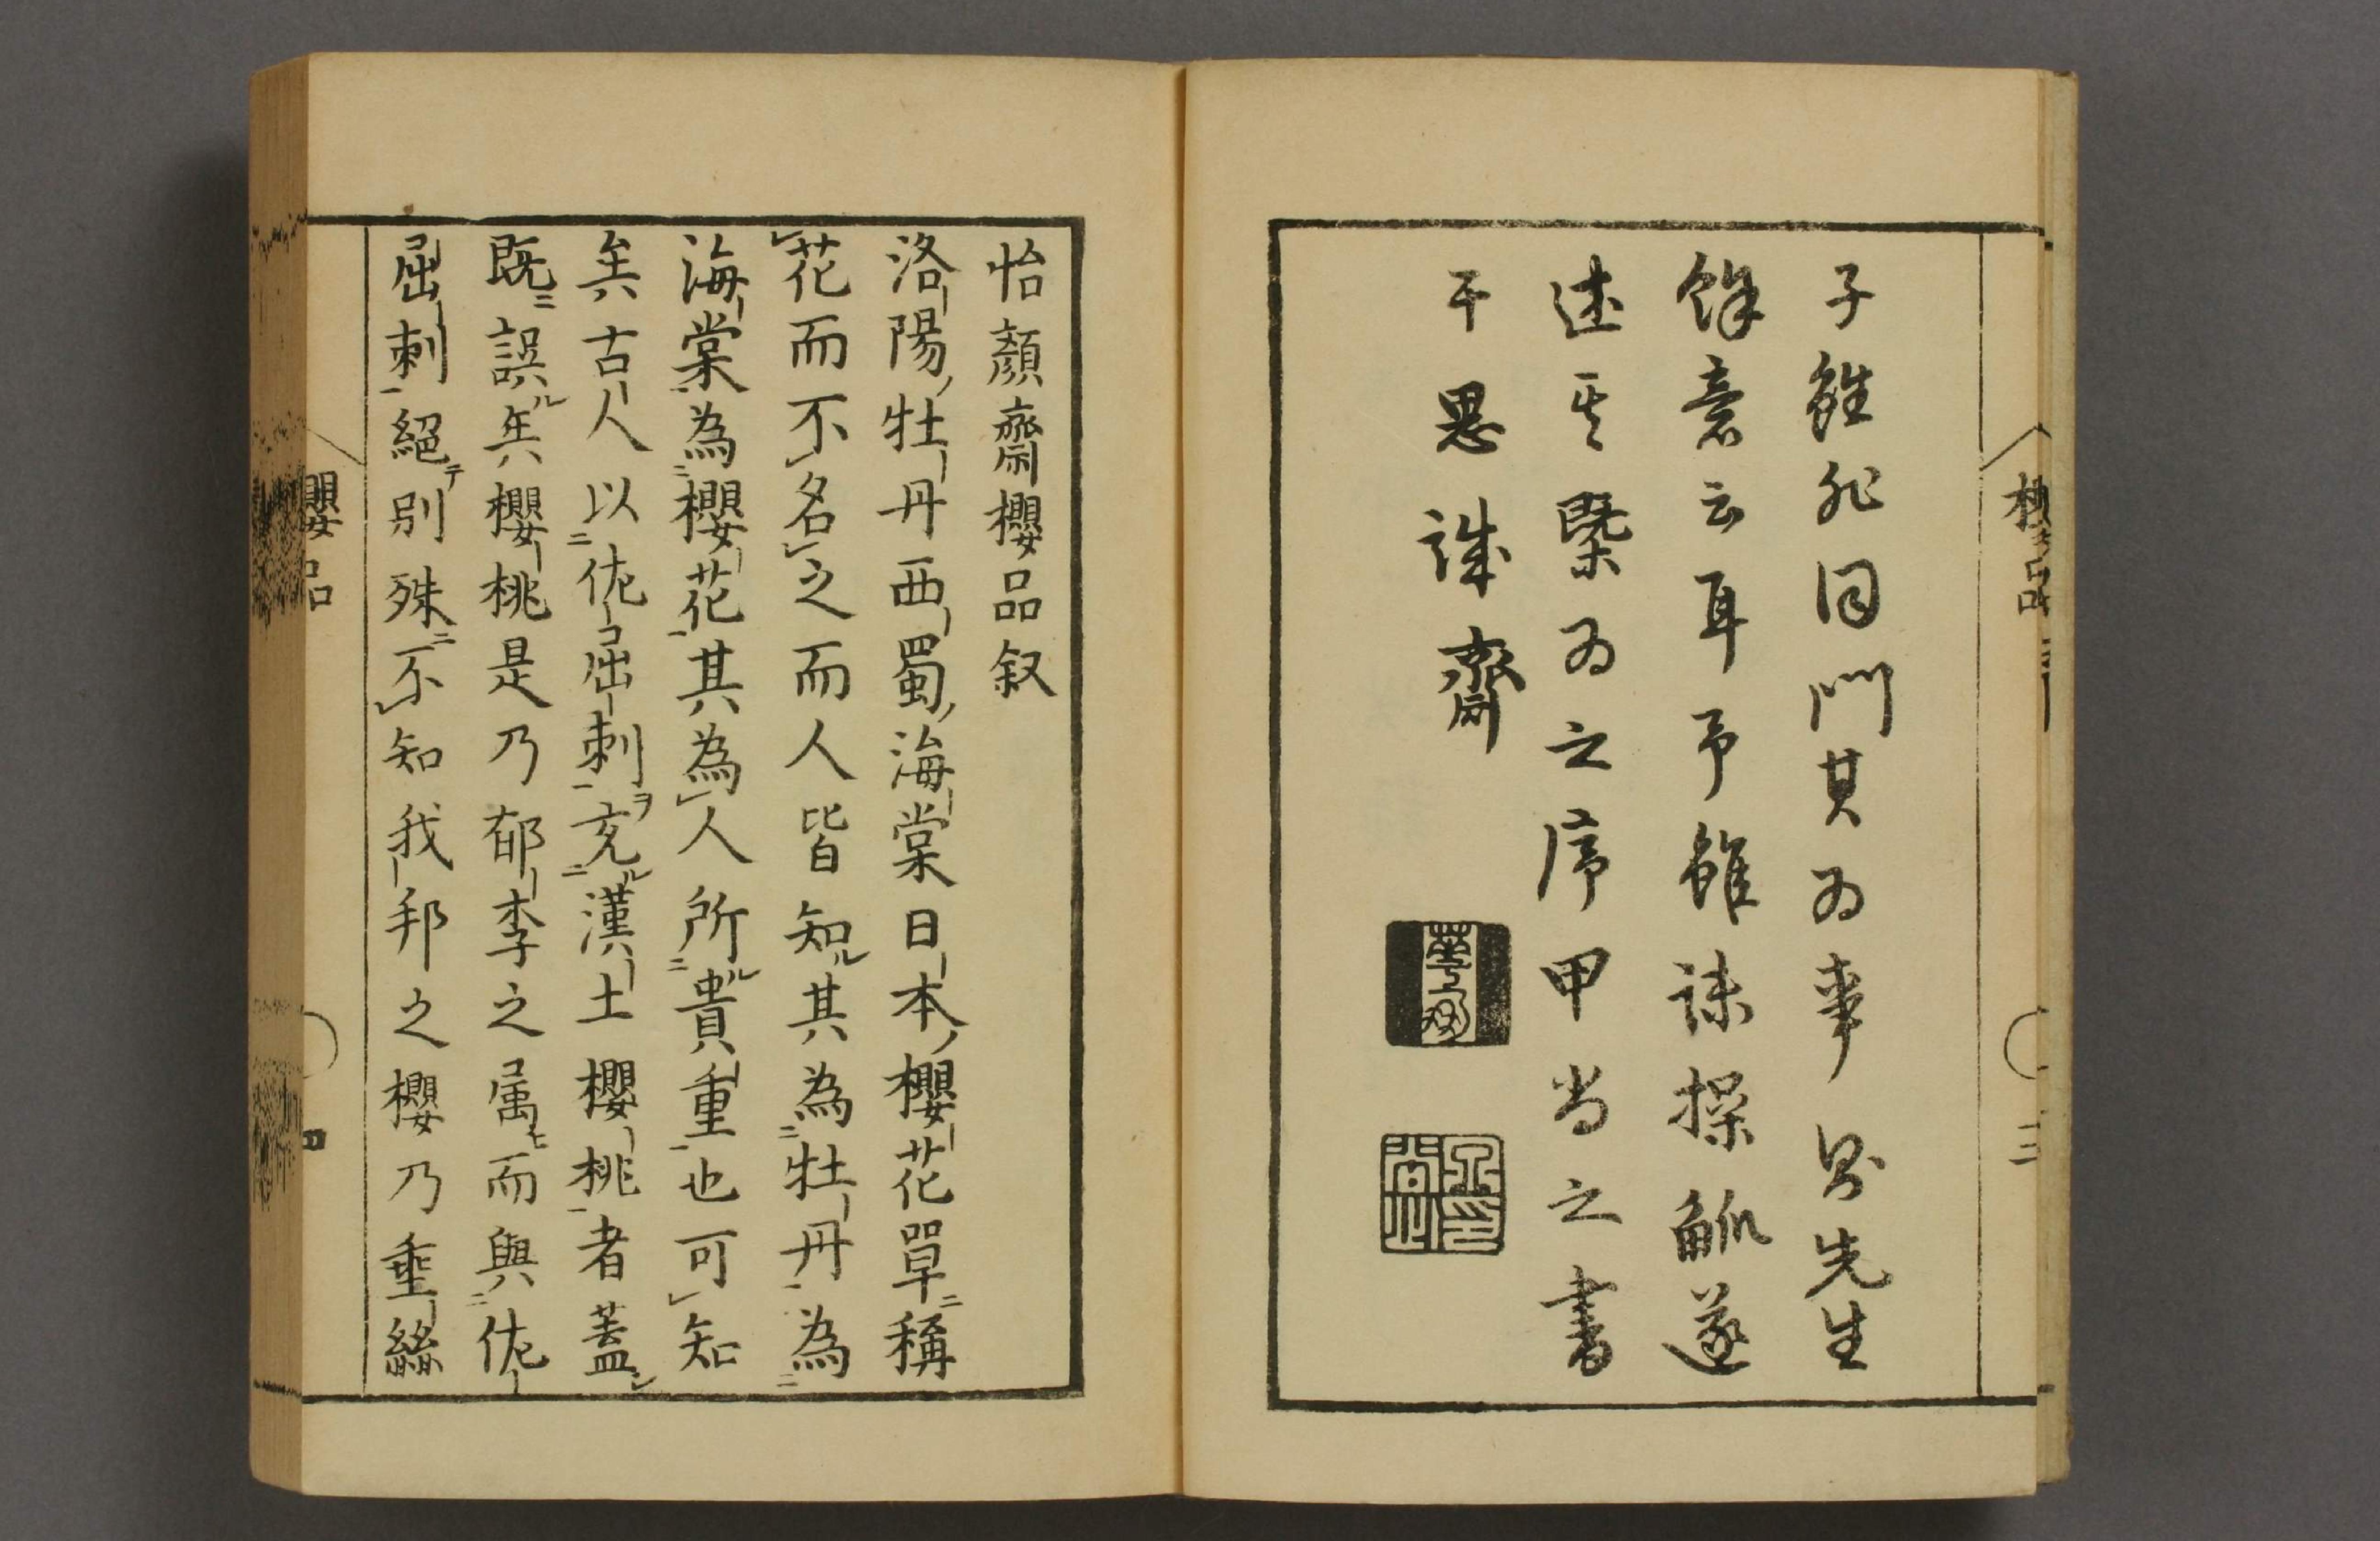 子雖非同門其為事與先生
餘意云耳予雖謙操觚遂
述其槩為之序甲為之書
于思誠齋
櫻品
三
怡顏齋櫻品叙
洛陽牡丹西蜀海棠日本櫻花單稱
花而不名之而人皆知其為牡丹為
海棠為櫻花其為人所貴重也可知
矣古人以佐屈刺充漢土櫻桃者蓋
既誤矣櫻桃是乃郁李之属而與佐
屈刺絕別殊不知我邦之櫻乃垂絲
櫻品
四